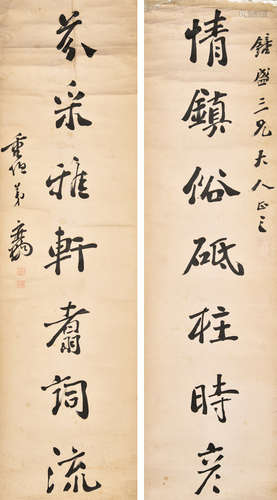 盛三兄大人正之
情鎮俗砥柱時彦
芬采雅軒翥詞流
重伯弟廣鈞